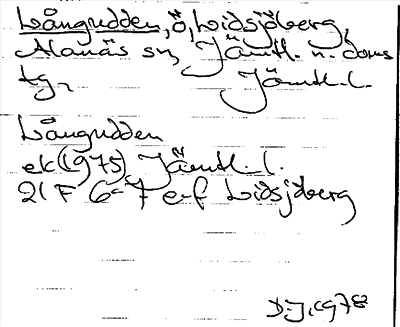 Långudden, Ö, Lidsjöberg,
Alanäs sn, Jämtl. n. doms
tg, Jämtl. l.
Långudden
ek(1975) Jämtl. l.
21 F 6-7 e-f Lidsjöberg
D.J. 1978